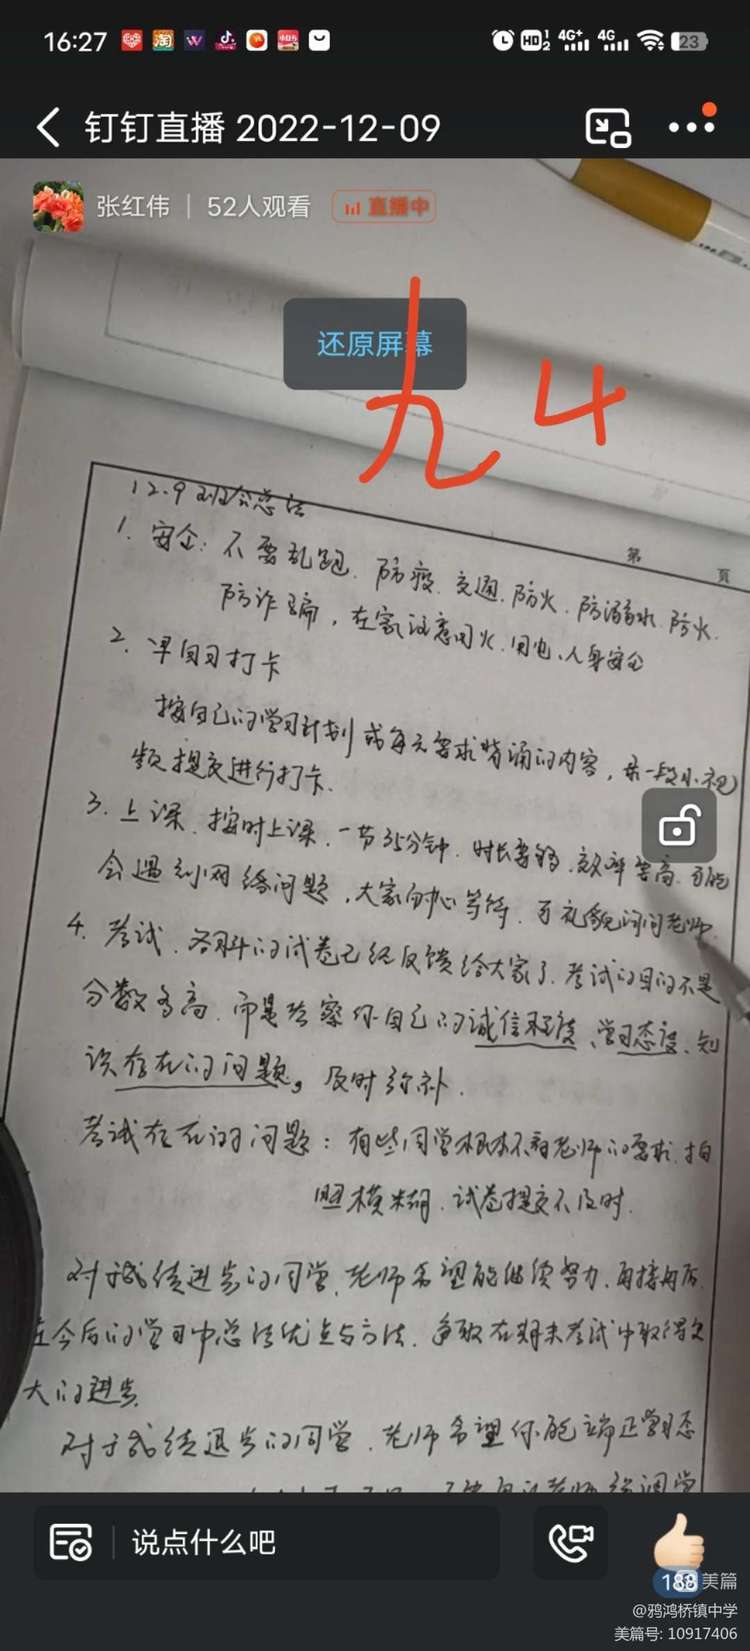 16:27
钉钉直播 2022-12-09
张红伟 | 52人观看 直播中
还原屏幕
九4
第 页
12.9班会总结
1. 安全:不要乱跑、防疫、交通、防火、防溺水、防火、
防诈骗,在家注意用火、用电、人身安全
2. 早自习打卡
按自己的学习计划或每天要求背诵的内容,录一段小视
频提交进行打卡.
3. 上课、按时上课、一节35分钟、时长要够、效率要高、可能
会遇到网络问题,大家耐心等待、要礼貌询问老师.
4. 考试、各科的试卷已经反馈给大家了、考试的目的不是
分数多高、而是检察你自己的诚信程度、学习态度、知
识存在的问题。及时弥补.
考试存在的问题:有些同学根本不看老师的要求、拍
照模糊、试卷提交不及时.
对于成绩进步的同学、老师希望能继续努力、再接再厉.
在今后的学习中总结优点与方法、争取在期末考试中取得更
大的进步.
对于成绩退步的同学、老师希望你能端正学习态
说点什么吧
188
美篇
@鸦鸿桥镇中学
美篇号: 10917406